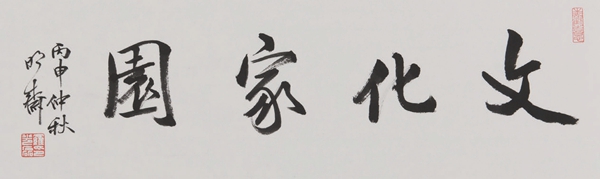 文化家園
丙申仲秋
明齋